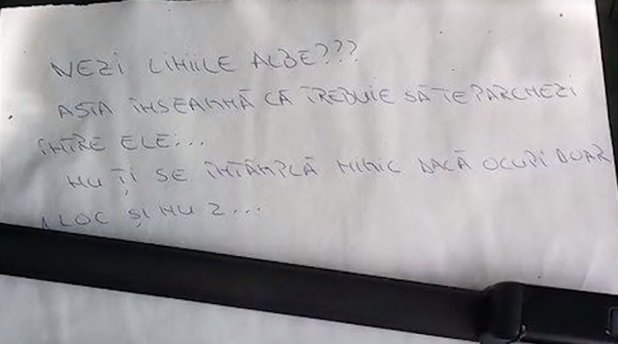 VEZI LINIILE ALBE???
ASTA ÎNSEAMNĂ CĂ TREBUIE SĂ TE PARCHEZI
ÎNTRE ELE...
NU ȚI SE ÎNTÂMPLĂ NIMIC DACĂ OCUPI DOAR
1 LOC ȘI NU 2...